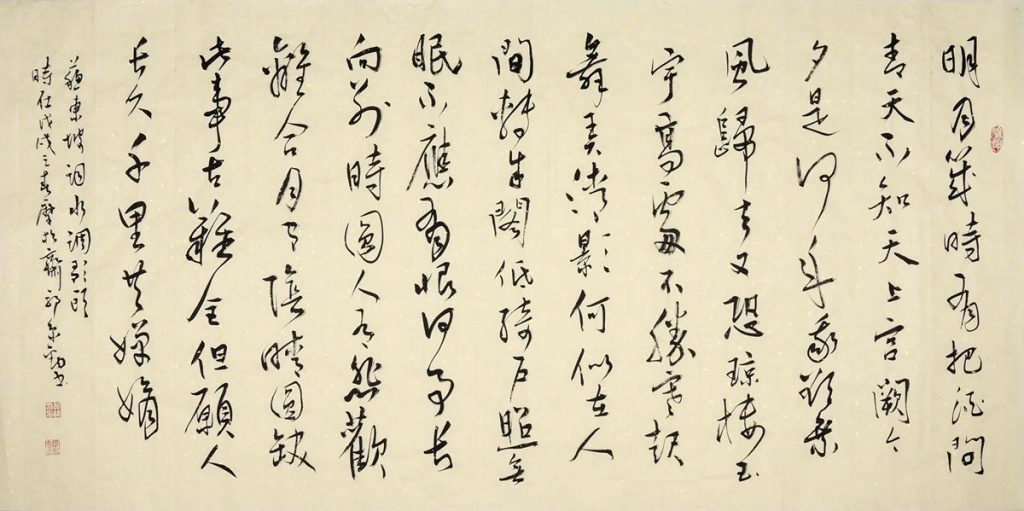 明月幾時有把酒問
青天不知天上宫闕今
夕是何年我欲乘
風歸去又恐瓊樓玉
宇高處不勝寒起
舞弄清影何似在人
間轉朱閣低綺户照無
眠不應有恨何事長
向别時圓人有悲歡
離合月有陰晴圆缺
此事古難全但願人
長久千里共嬋娟
蘇東坡词水调歌頭
時在戊戌之春於齋书